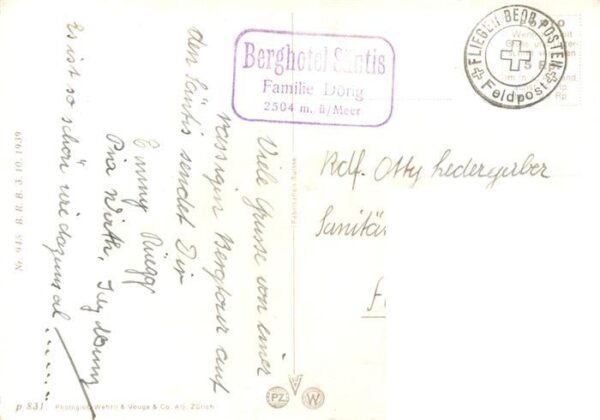 Berghotel Säntis
Familie Dörig
2504 m. ü/Meer
FLIEGER BEOB. POSTEN
Feldpost
Viele Grüsse von einer
rassigen Bergtour auf
den Säntis sendet Dir
Emmy Rüegg
Pia Wirth,
Es ist so schön wie dazumal
Rdf. Otty Ledergerber
Sanitä
F
Nr. 948 B.R.B. 3. 10. 1939
Fabrication Suisse
p 831
Photoglob-Wehrli & Vouga & Co. AG. Zürich
PZ
W